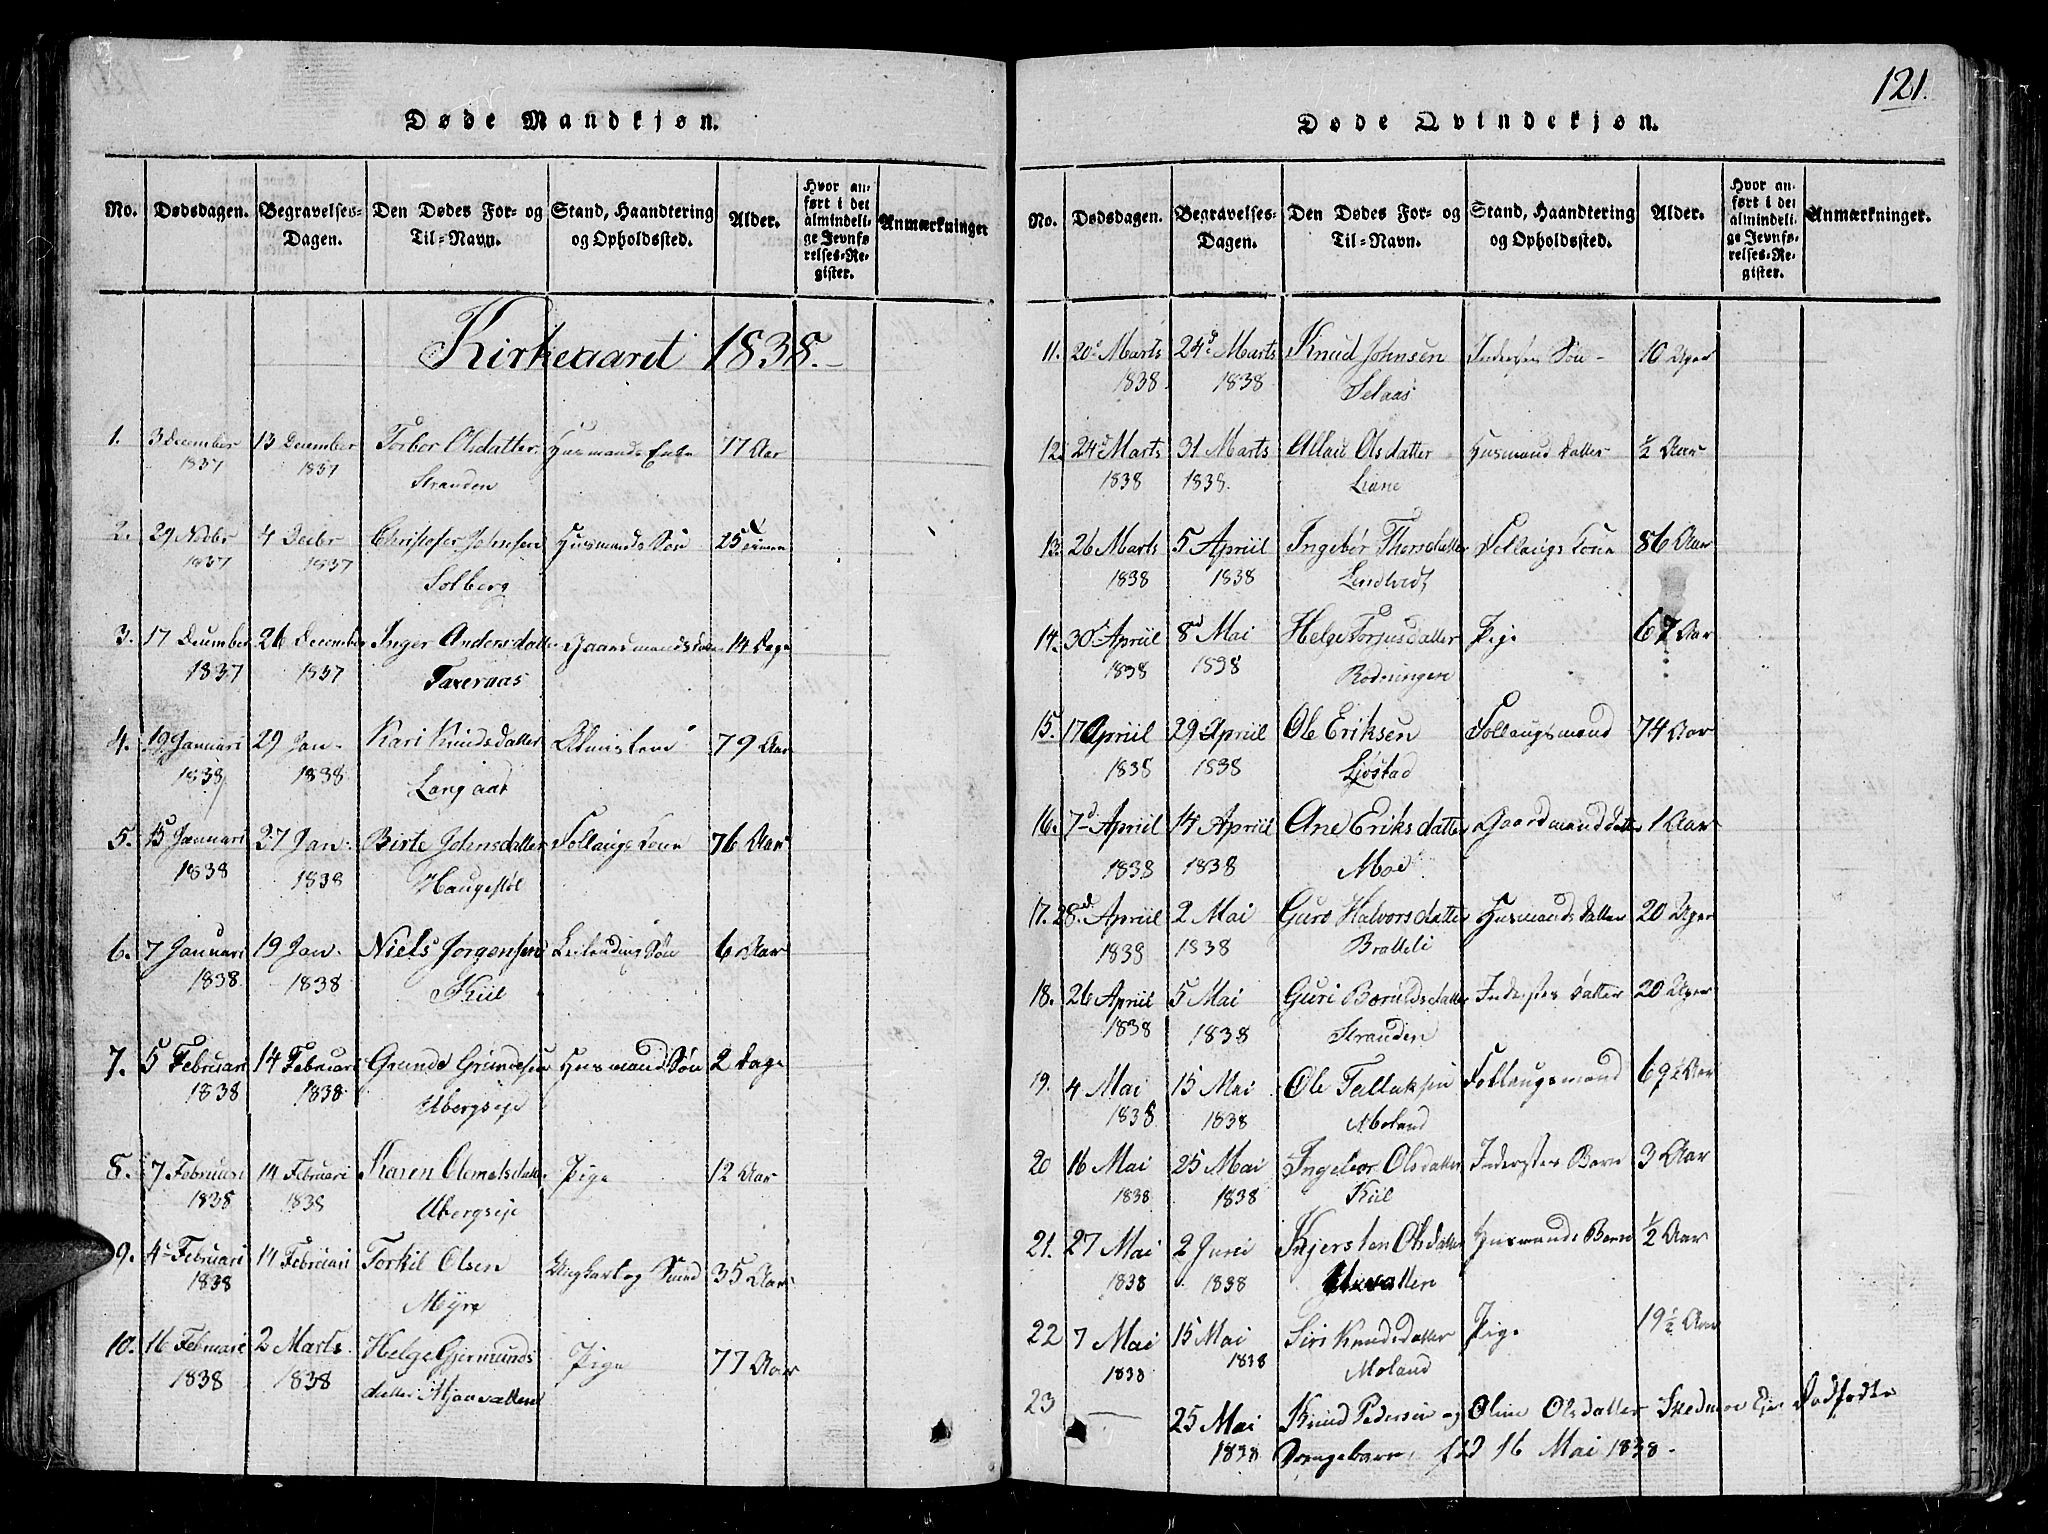 121.
Døde Mandkjøn.
No. Dødsdagen. Begravelses-Dagen. Den Dødes For- og Til-Navn. Stand, Haandtering og Opholdssted. Alder. Hvor anført i det almindelige Jevnførelses-Register. Anmærkninger
Kirkeaaret 1838.
1. 3 December 13 December Torbor Olsdatter Husmands Enke 77 Aar
1837 1837 Stranden
2. 29 Novbr 4 Decbr Christofer Johnsen Husmands Søn 25
1837 1837 Solberg
3. 17 December 26 December Inger Andersdatter Gaardmands 14 Dage
1837 1837
4. 19 Januari 29 Jan. Kari Knudsdatter 79 Aar
1838 1838
5. 15 Januari 27 Jan. Birte Johnsdatter Follaugs Kone 76 Aar
1838 1838 Haugestøl
6. 7 Januari 19 Jan. Niels Jørgensen Leilendings Søn 6 Aar
1838 1838 Kiil
7. 5 Februari 14 Februari Grunde Grundesen Husmands Søn 2 Dage
1838 1838 Ubergseje
8. 7 Februari 14 Februari Karen Olsdatter Pige 12 Aar
1838 1838 Ubergseje
9. 4 Februari 14 Februari Torkil Olsen Ungkarl og 35 Aar
1838 Myre
10. 16 Februari 2 Marts Helge Gjermunds Pige 77 Aar
1838 1838 datter Mjaavatten
Døde Qvindekjøn.
No. Dødsdagen. Begravelses-Dagen. Den Dødes For- og Til-Navn. Stand, Haandtering og Opholdssted. Alder. Hvor anført i det almindelige Jevnførelses-Register. Anmærkninger.
11. 20d Marts 24d Marts Knud Johnsen Inderstes Søn 10 Uger
1838 1838 Selaas
12. 24d Marts 31 Marts Olsdatter Husmands datter ½ Aar
1838 1838 Liane
13. 26 Marts 5 Apriil Ingebor Thorsdatter Follaugs Kone 86 Aar
1838 1838 Lindtvedt
14. 30 Apriil 8d Mai Helge Torjusdatter Pige 67 Aar
1838 1838 Rødningen
15. 17 Apriil 29 Apriil Ole Eriksen Follaugsmand 74 Aar
1838 1838 Ljøstad
16. 7d Apriil 14 Apriil Ane Eriksdatter Gaardmands datter 1 Aar
1838 1838 Moe
17. 28 Apriil 2 Mai Guro Halvorsdatter Husmands datter 20 Uger
1838 1838 Bratteli
18. 26 Apriil 5 Mai Guri Børuldsdatter Inderstes datter 20 Uger
1838 1838 Stranden
19. 4 Mai 15 Mai Ole Tallaksen Follaugsmand 69½ Aar
1838 1838 Moland
20 16 Mai 25 Mai Ingebor Olsdatter Inderstes Barn 3 Aar
1838 1838 Kiil
21. 27 Mai 2 Juni Kjersten Olsdatter Husmands Barn ½ Aar
1838 1838
22 7 Mai 15 Mai Siri Knudsdatter Pige 19½ Aar
1838 1838 Moland
23 — 25 Mai Knud Pedersen og Oline Olsdatter Skedmoe Eje Dødfødte
1838 Drengebarn, fød 16 Mai 1838.